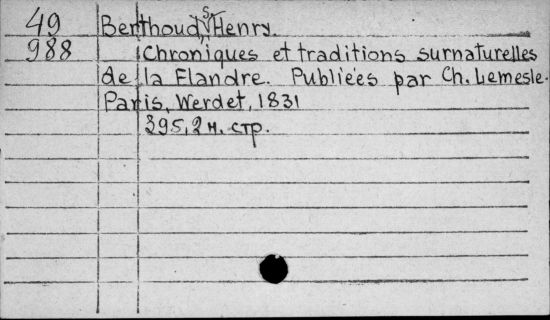 49 Berthoud, S. Henry.
988 Chroniques et traditions surnaturelles
de la Flandre. Publiées par Ch. Lemesle.
Paris, Werdet, 1831
395, 2 н. стр.